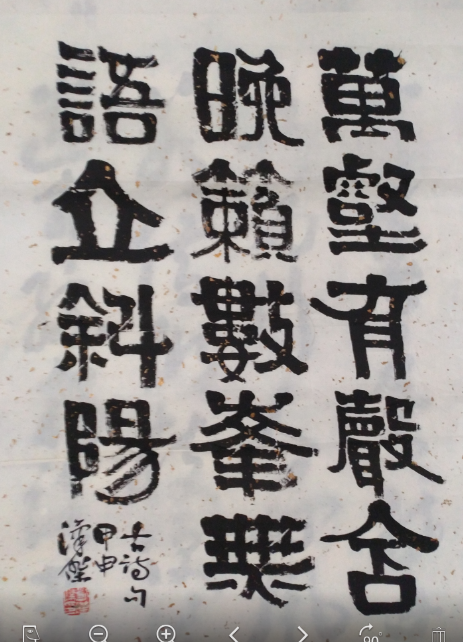 萬壑有聲含
晚籟數峯無
語立斜陽
古詩句
甲申
漢傑